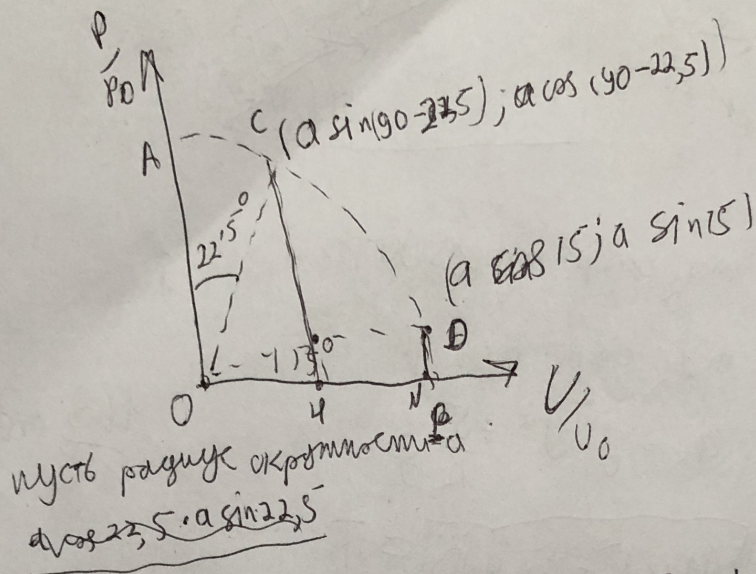 P/P0
A
C (a sin(90-22,5); a cos(90-22,5))
22,5°
(a cos 15; a sin 15)
15°
D
O
H
N
B
U/U0
пусть радиус окружности = a
a cos 22,5 · a sin 22,5